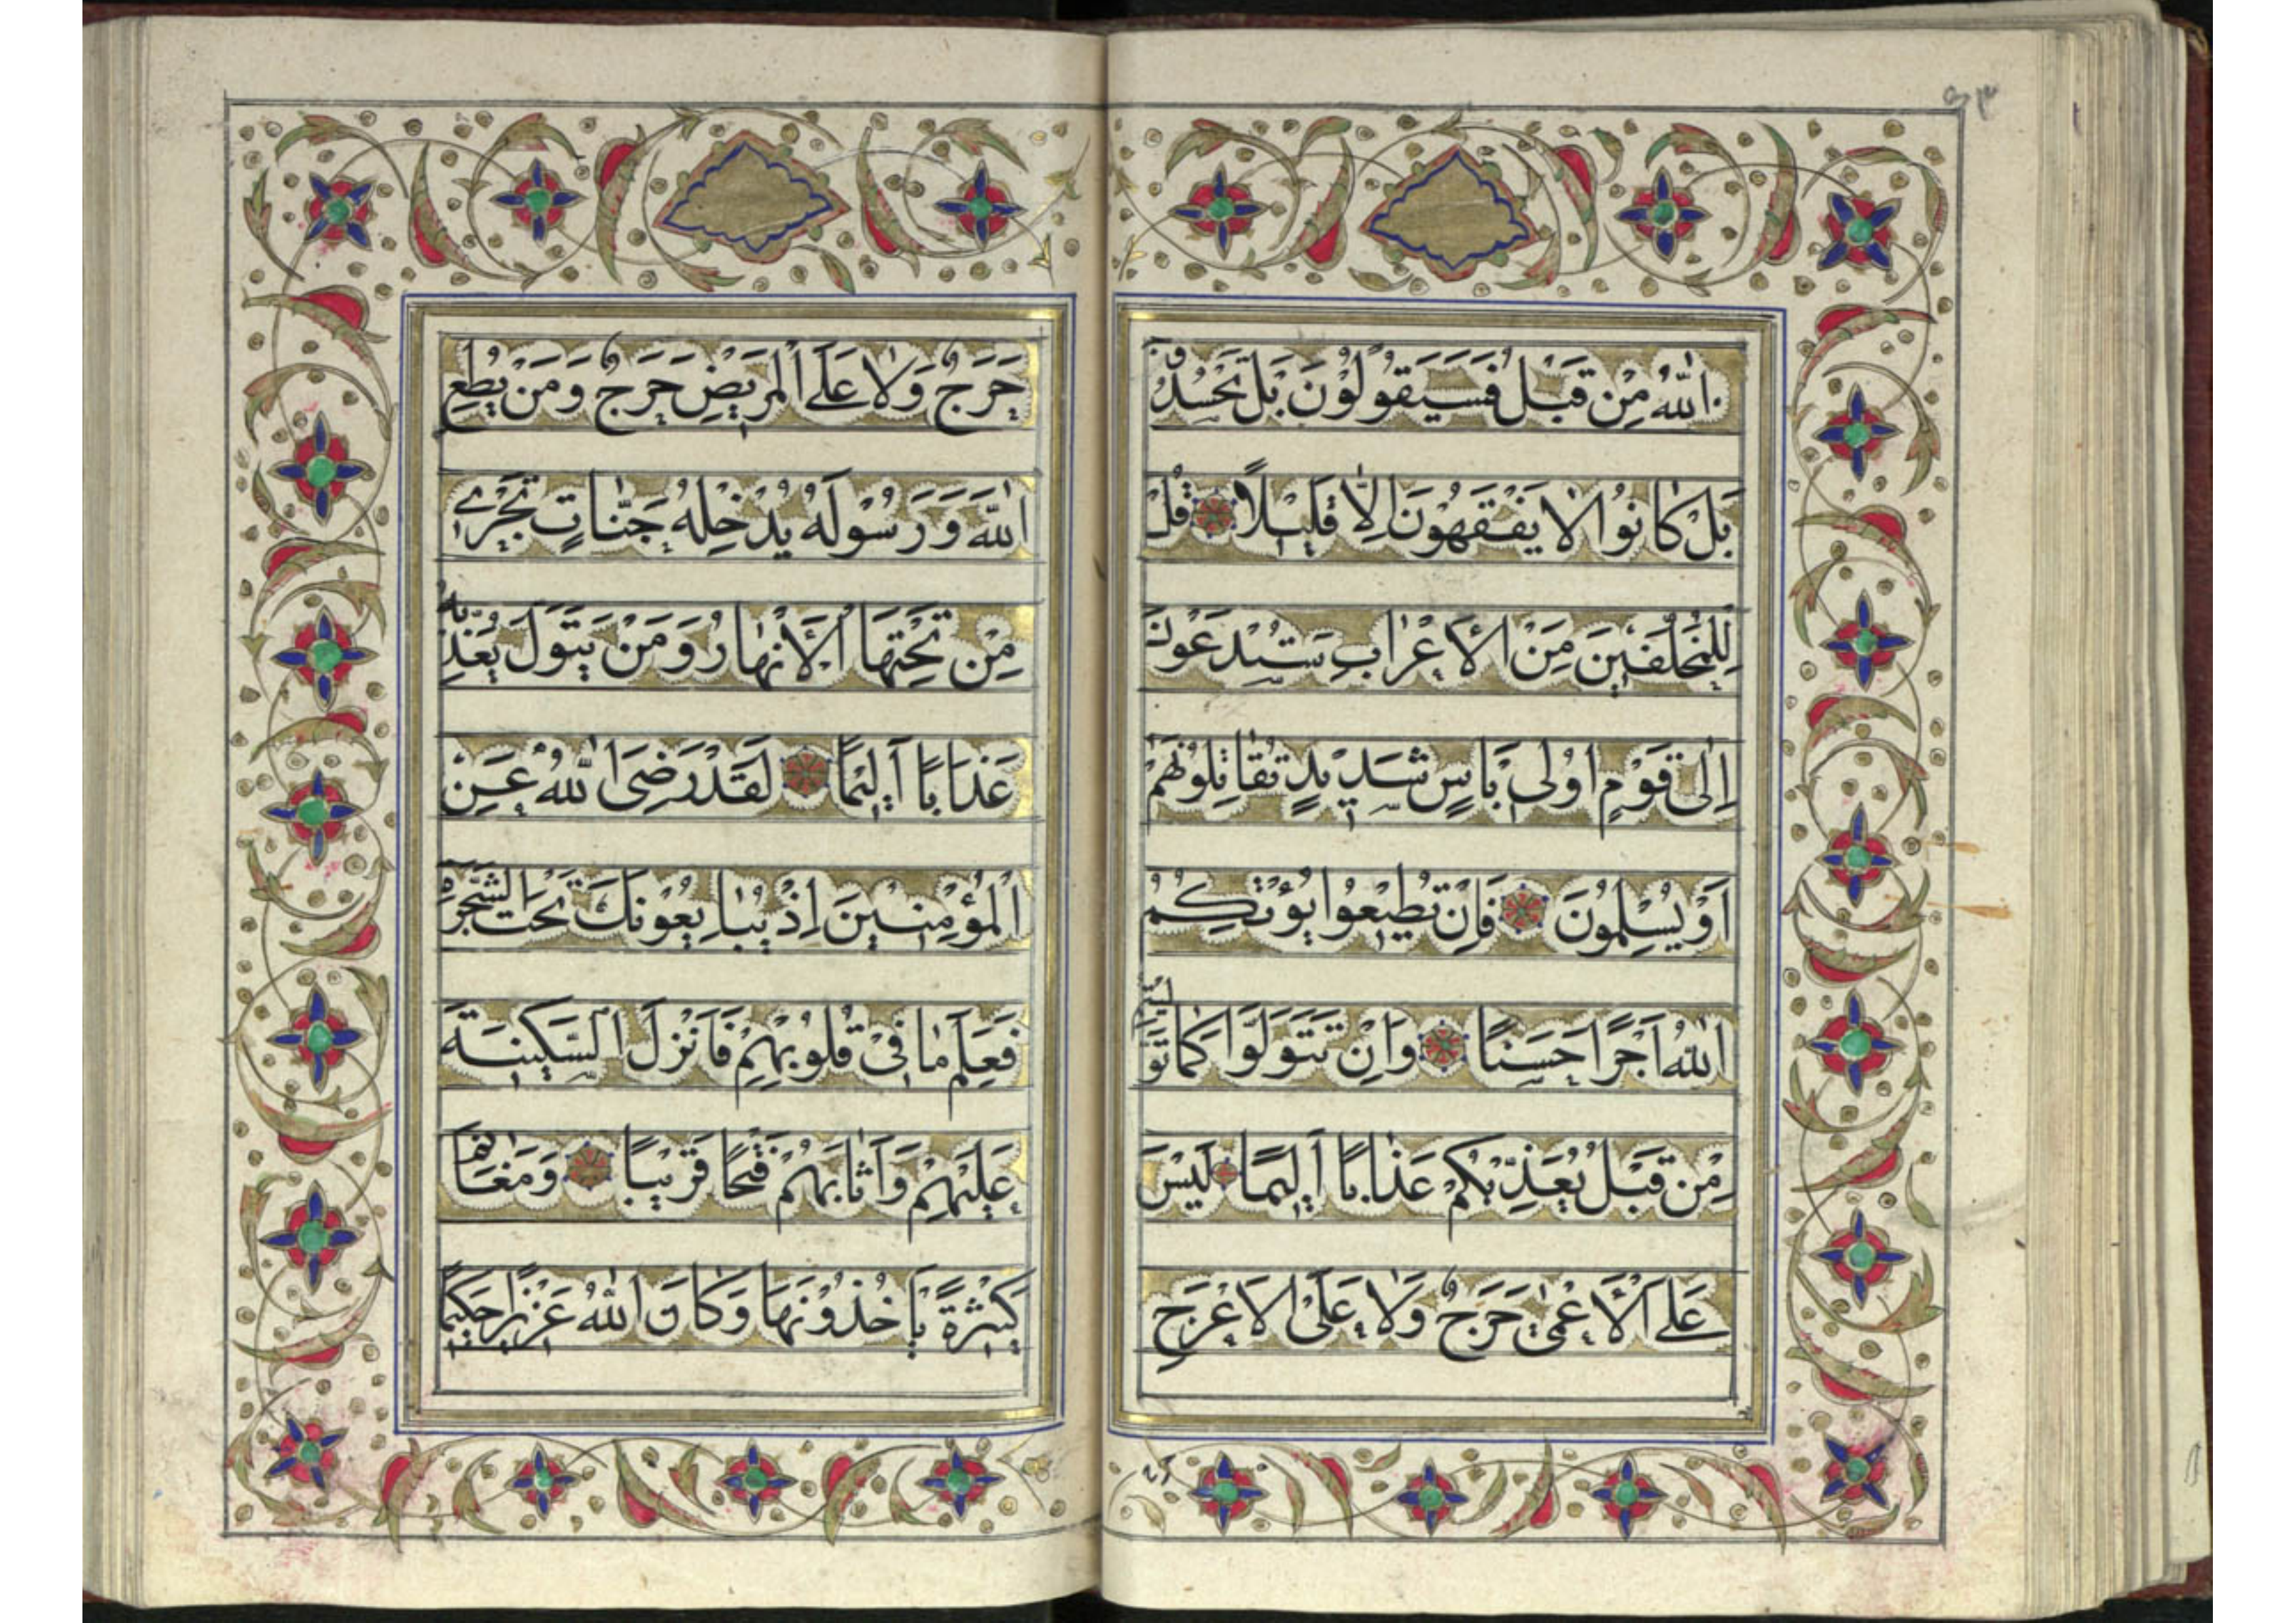 ٥٣
اللّٰهُ مِنْ قَبْلُ فَسَيَقُولُوْنَ بَلْ تَحْسُدُوْنَنَا
بَلْ كَانُوا لَا يَفْقَهُوْنَ اِلَّا قَلِيْلًا قُلْ
لِلْمُخَلَّفِيْنَ مِنَ الْاَعْرَابِ سَتُدْعَوْنَ
اِلٰى قَوْمٍ اُولِى بَاْسٍ شَدِيْدٍ تُقَاتِلُوْنَهُمْ
اَوْ يُسْلِمُوْنَ فَاِنْ تُطِيْعُوا يُؤْتِكُمُ
اللّٰهُ اَجْرًا حَسَنًا وَاِنْ تَتَوَلَّوْا كَمَا تَوَلَّيْتُمْ
مِنْ قَبْلُ يُعَذِّبْكُمْ عَذَابًا اَلِيْمًا لَيْسَ
عَلَى الْاَعْمٰى حَرَجٌ وَلَا عَلَى الْاَعْرَجِ
حَرَجٌ وَلَا عَلَى الْمَرِيْضِ حَرَجٌ وَمَنْ يُطِعِ
اللّٰهَ وَرَسُوْلَهُ يُدْخِلْهُ جَنَّاتٍ تَجْرِيْ
مِنْ تَحْتِهَا الْاَنْهَارُ وَمَنْ يَتَوَلَّ يُعَذِّبْهُ
عَذَابًا اَلِيْمًا لَقَدْ رَضِىَ اللّٰهُ عَنِ
الْمُؤْمِنِيْنَ اِذْ يُبَايِعُوْنَكَ تَحْتَ الشَّجَرَةِ
فَعَلِمَ مَا فِىْ قُلُوْبِهِمْ فَاَنْزَلَ السَّكِيْنَةَ
عَلَيْهِمْ وَاَثَابَهُمْ فَتْحًا قَرِيْبًا وَمَغَانِمَ
كَثِيْرَةً يَاْخُذُوْنَهَا وَكَانَ اللّٰهُ عَزِيْزًا حَكِيْمًا